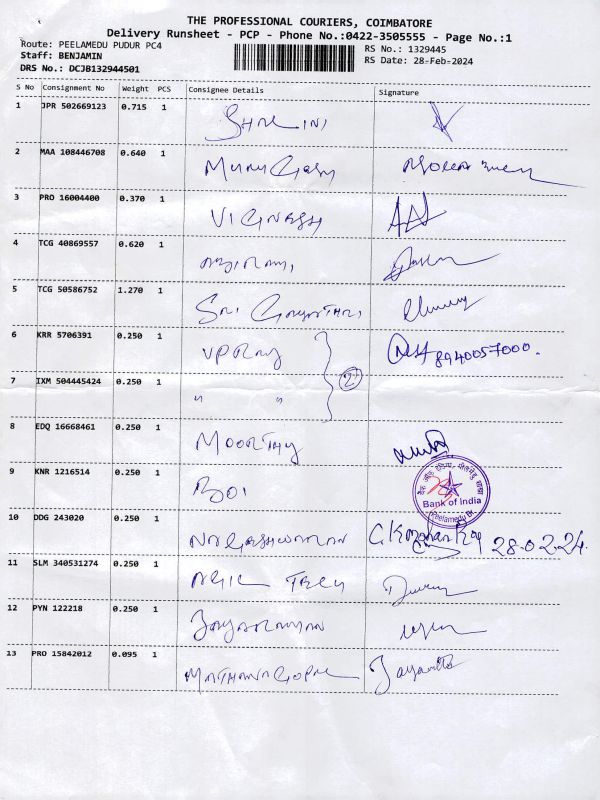 THE PROFESSIONAL COURIERS, COIMBATORE
Delivery Runsheet - PCP - Phone No.:0422-3505555 - Page No.:1
Route: PEELAMEDU PUDUR PC4
RS No.: 1329445
Staff: BENJAMIN
RS Date: 28-Feb-2024
DRS No.: DCJB132944501
S No Consignment No Weight PCS Consignee Details Signature
1 JPR 502669123 0.715 1 SHALINI
2 MAA 108446708 0.640 1 Murugesh
3 PRO 16004400 0.370 1 VIGNESSH
4 TCG 40869557 0.620 1 ABIRAMI
5 TCG 50586752 1.270 1 SRI GAYATHRI
6 KRR 5706391 0.250 1 VPRAJ 8940057000.
7 IXM 504445424 0.250 1 " " 2
8 EDQ 16668461 0.250 1 MOORTHY
9 KNR 1216514 0.250 1 BOI
Bank of India
Peelamedu Br.
10 DDG 243020 0.250 1 NAGESHWARAN 28.02.24
11 SLM 340531274 0.250 1 AGIL
12 PYN 122218 0.250 1 JAYARAMAN
13 PRO 15842012 0.095 1 MATHANAGOPAL